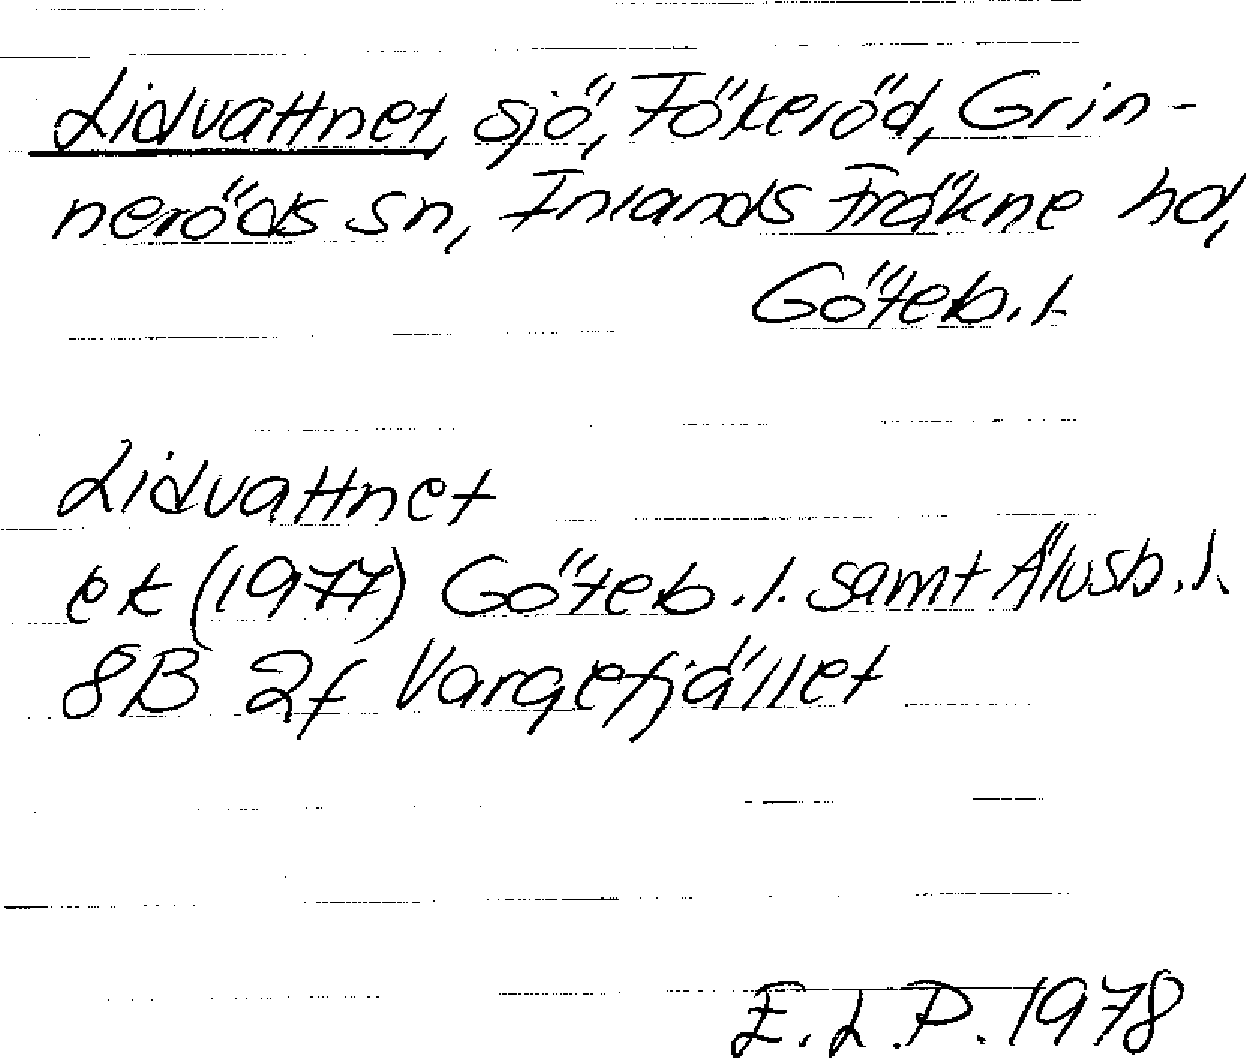 Lidvattnet, sjö, Fökeröd, Grin-
neröds sn, Inlands Fräkne hd,
Göteb. l.
Lidvattnet
ek (1977) Göteb. l. samt Älvsb. l.
8B 2f Vargefjället
E. L. P. 1978